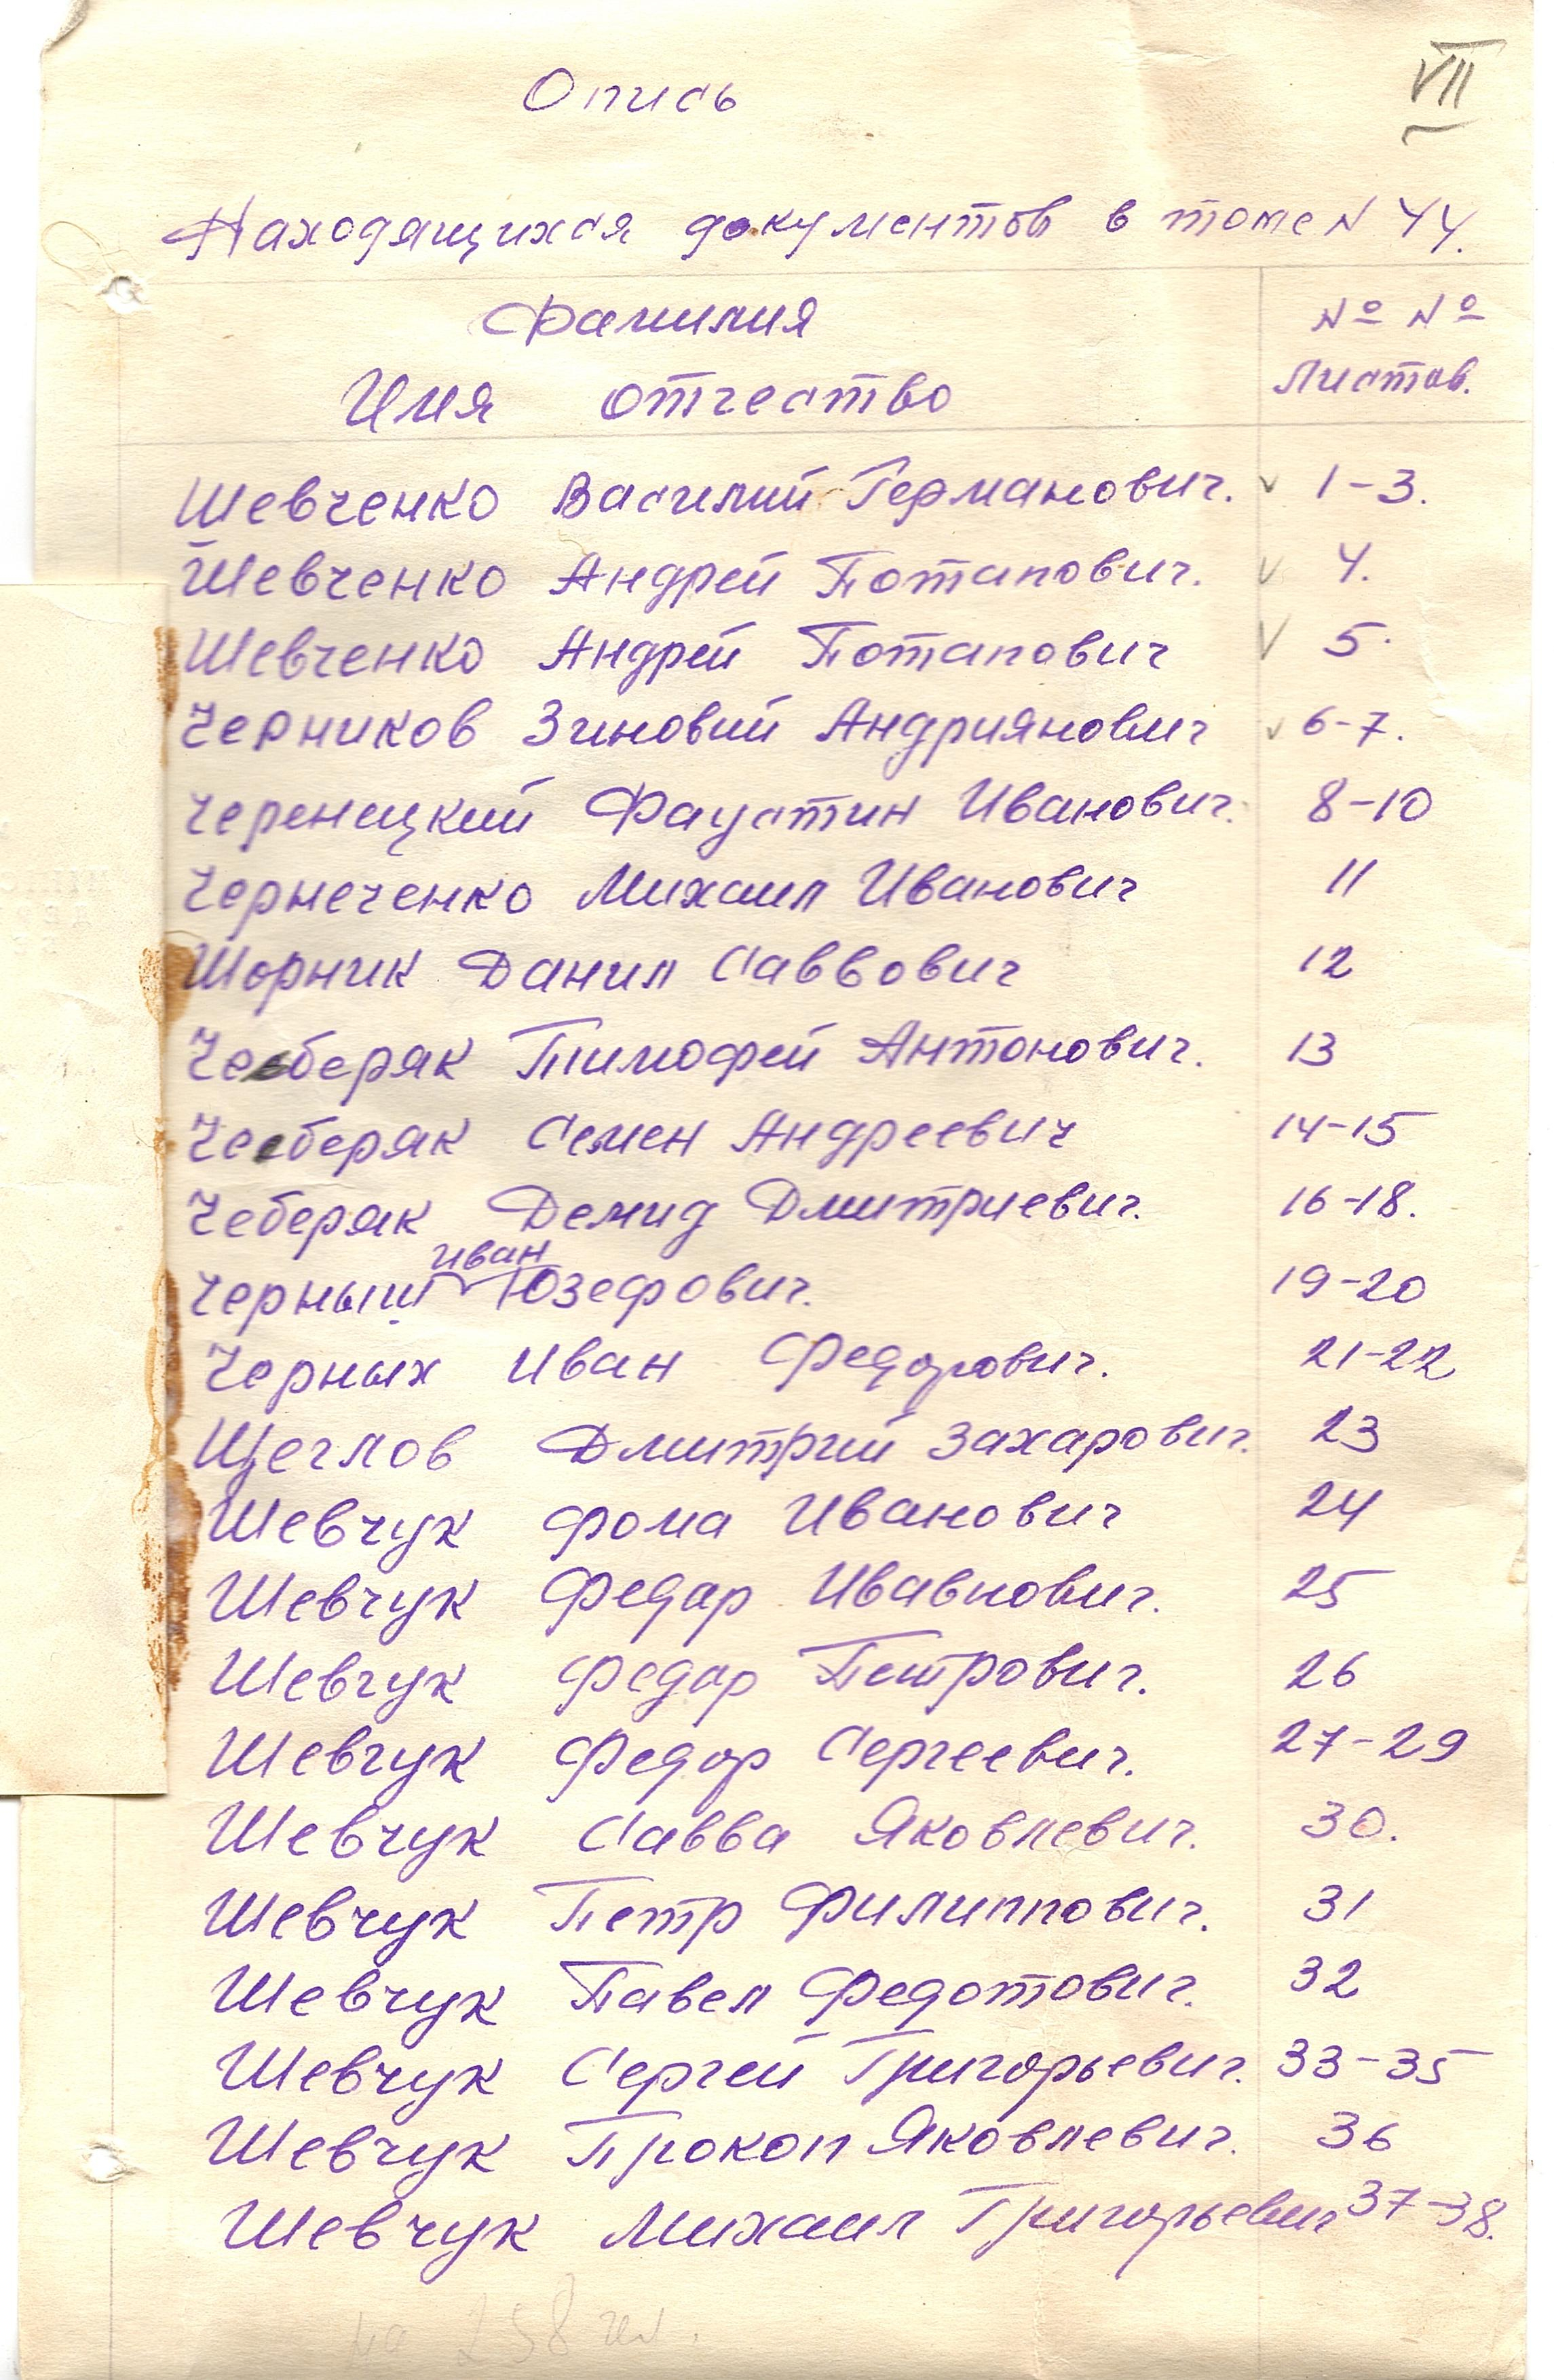 VII
Опись
Находящихся документов в томе N 44.
Фамилия
Имя отчество
№ №
Листов.
Шевченко Василий Германович. v 1-3.
Шевченко Андрей Потапович. v 4.
Шевченко Андрей Потапович v 5.
Черников Зиновий Андриянович v 6-7.
Черенецкий Фаустин Иванович. 8-10
Чернеченко Михаил Иванович 11
Шорник Данил Саввович 12
Чеберяк Тимофей Антонович. 13
Чеберяк Семен Андреевич 14-15
Чеберяк Демид Дмитриевич. 16-18.
Иван
Черныш Юзефович. 19-20
Черных Иван Федорович. 21-22
Щеглов Дмитрий Захарович. 23
Шевчук Фома Иванович 24
Шевчук Федар Ивавнович. 25
Шевчук Федар Петрович. 26
Шевчук Федор Сергеевич. 27-29
Шевчук Савва Яковлевич. 30.
Шевчук Петр Филиппович. 31
Шевчук Павел Федотович. 32
Шевчук Сергей Григорьевич. 33-35
Шевчук Прокоп Яковлевич. 36
Шевчук Михаил Григорьевич 37-38.
на 258